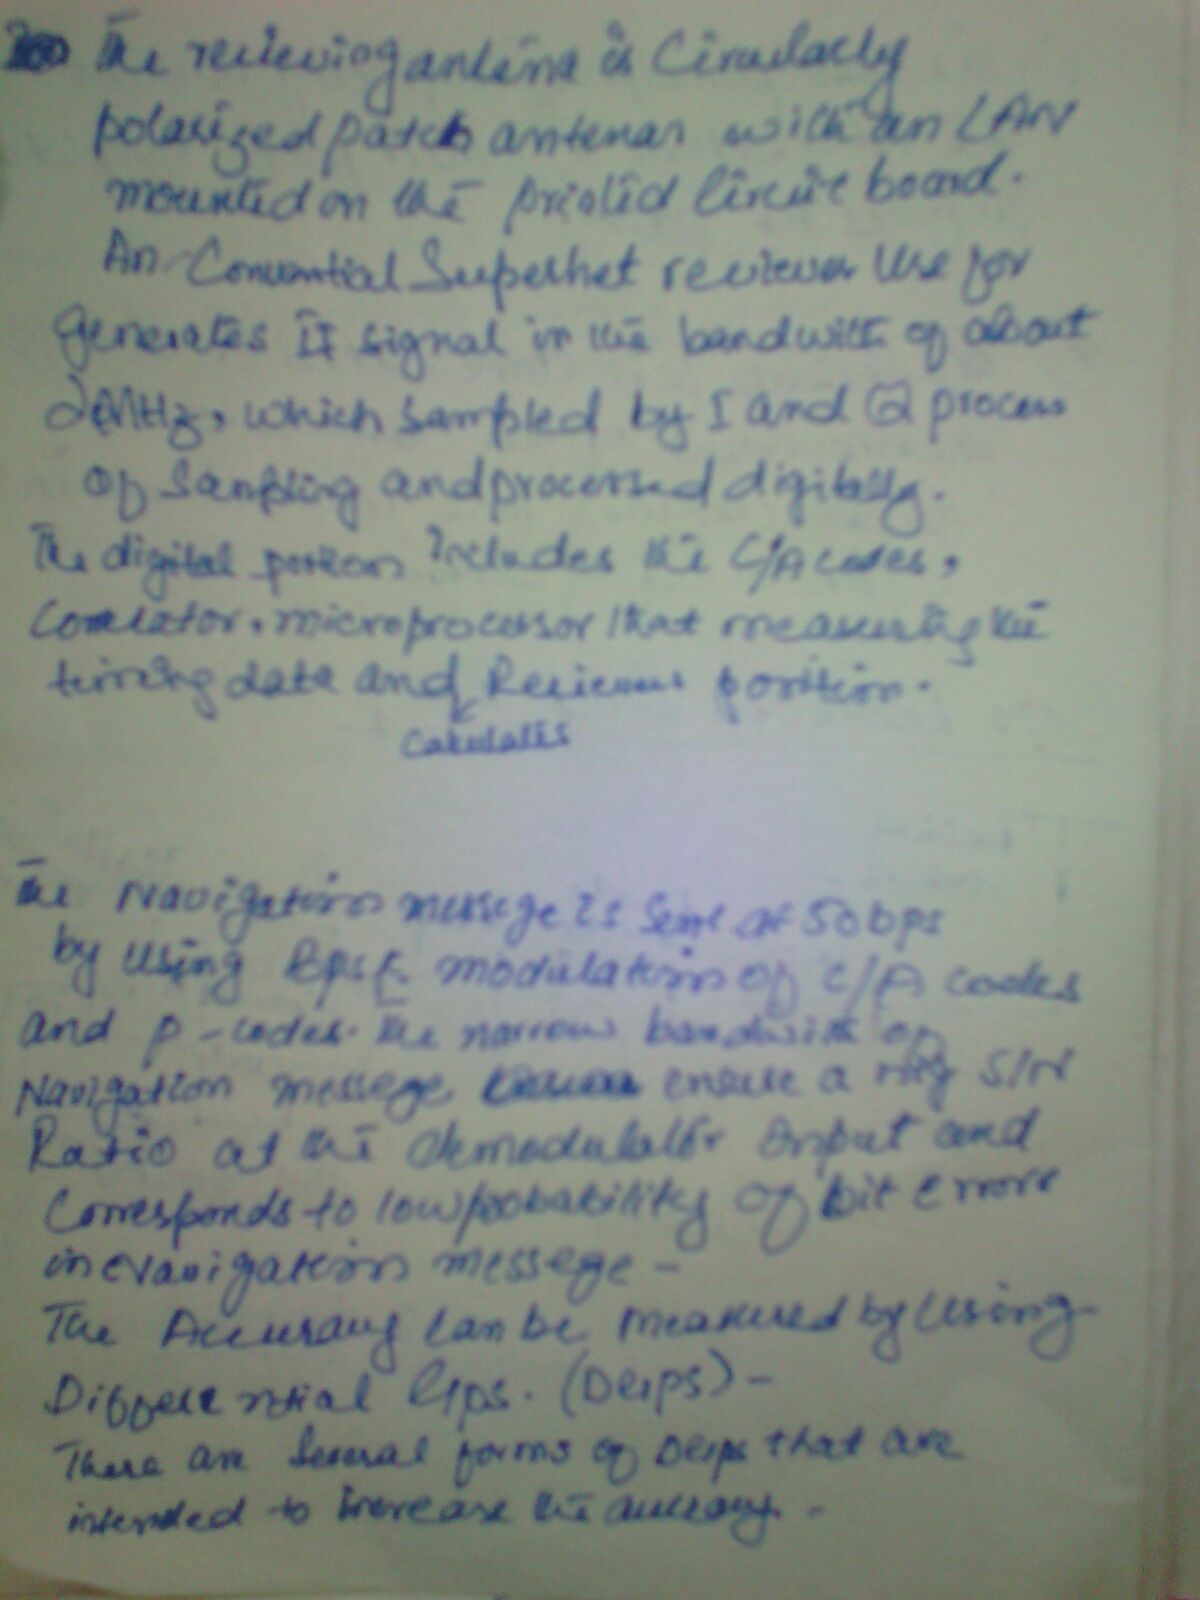 The recieving antena is Circularly
polarized patch antenar with an LAN
mounted on the printed Circuit board.
An Convential Superhet reciever Use for
Generates If signal in the bandwith of about
2MHz, which sampled by I and Q process
of Sampling and processed digitally.
The digital portion Includes the C/A codes,
Corelator, microprocessor that measuring the
timing data and Recievers portion.
Calculates
The Navigation messege is Sent at 50 bps
by using Bpsk modulation of C/A codes
and p-codes. The narrow bandwith of
Navigation messege ensure a S/N
Ratio at the demodulator Output and
Corresponds to low probability of bit errors
in navigation messege -
The Accuracy Can be measured by Using
Differential Gps. (DGPS) -
There are Several forms of DGps that are
intended to increase the accuracy. -